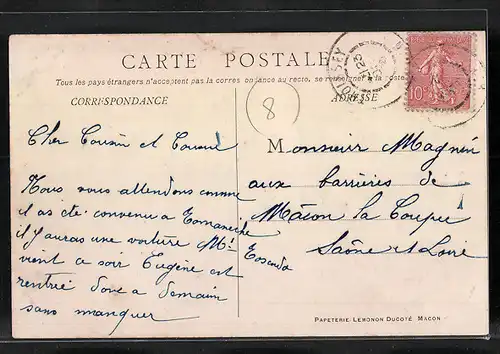 CARTE POSTALE
Tous les pays étrangers n'acceptent pas la correspondance au recto, se renseigner à la poste.
CORRESPONDANCE
ADRESSE
8
10
Cher Cousin et Cousine
Nous vous attendons comme
il as été convenu a
il y auras une voiture
vent ce soir Eugène est
rentré donc a demain
sans manquer
Monsieur Magnin
aux barrières de
Mâcon la Coupée
Saône et Loire
PAPETERIE LEMONON DUCOTÉ MACON